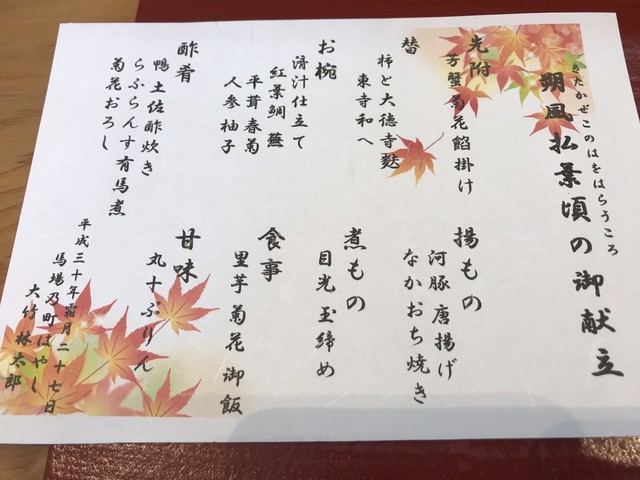 きたかぜこのはをはらうころ
朔風払葉頃の御献立
先附
芳蟹菊花餡掛け
替
柿と大徳寺麩
東寺和へ
お椀
清汁仕立て
紅葉鯛 蕪
平茸春菊
人参柚子
酢肴
鴨 土佐酢炊き
らふらんす有馬煮
菊花おろし
揚もの
河豚唐揚げ
なかおち焼き
煮もの
目光玉締め
食事
里芋菊花御飯
甘味
丸十ぷりん
平成三十年霜月二十七日
馬場乃町はやし
大竹林太郎